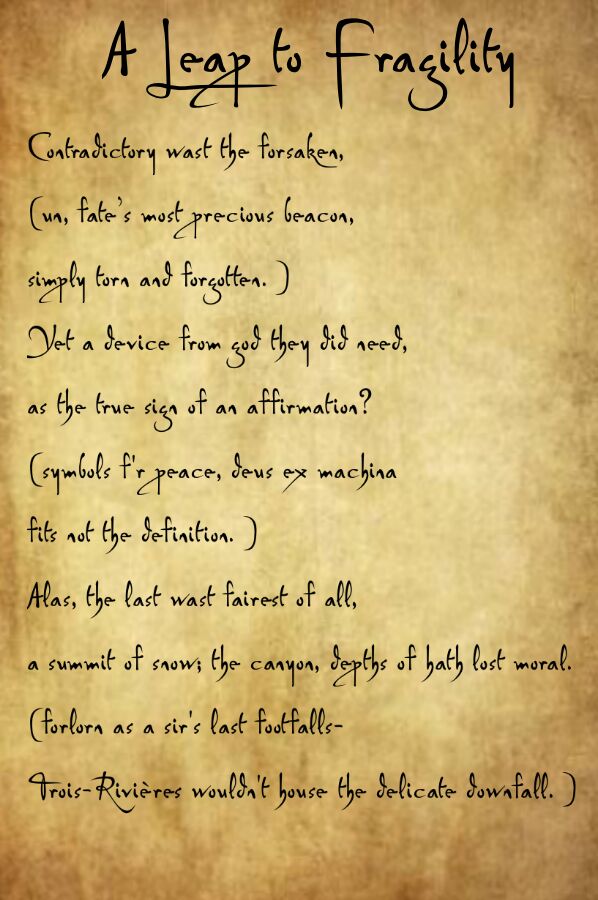 A Leap to Fragility
Contradictory wast the forsaken,
(un, fate's most precious beacon,
simply torn and forgotten. )
Yet a device from god they did need,
as the true sign of an affirmation?
(symbols f'r peace, deus ex machina
fits not the definition. )
Alas, the last wast fairest of all,
a summit of snow; the canyon, depths of hath lost moral.
(forlorn as a sir's last footfalls-
Trois-Rivières wouldn't house the delicate downfall. )